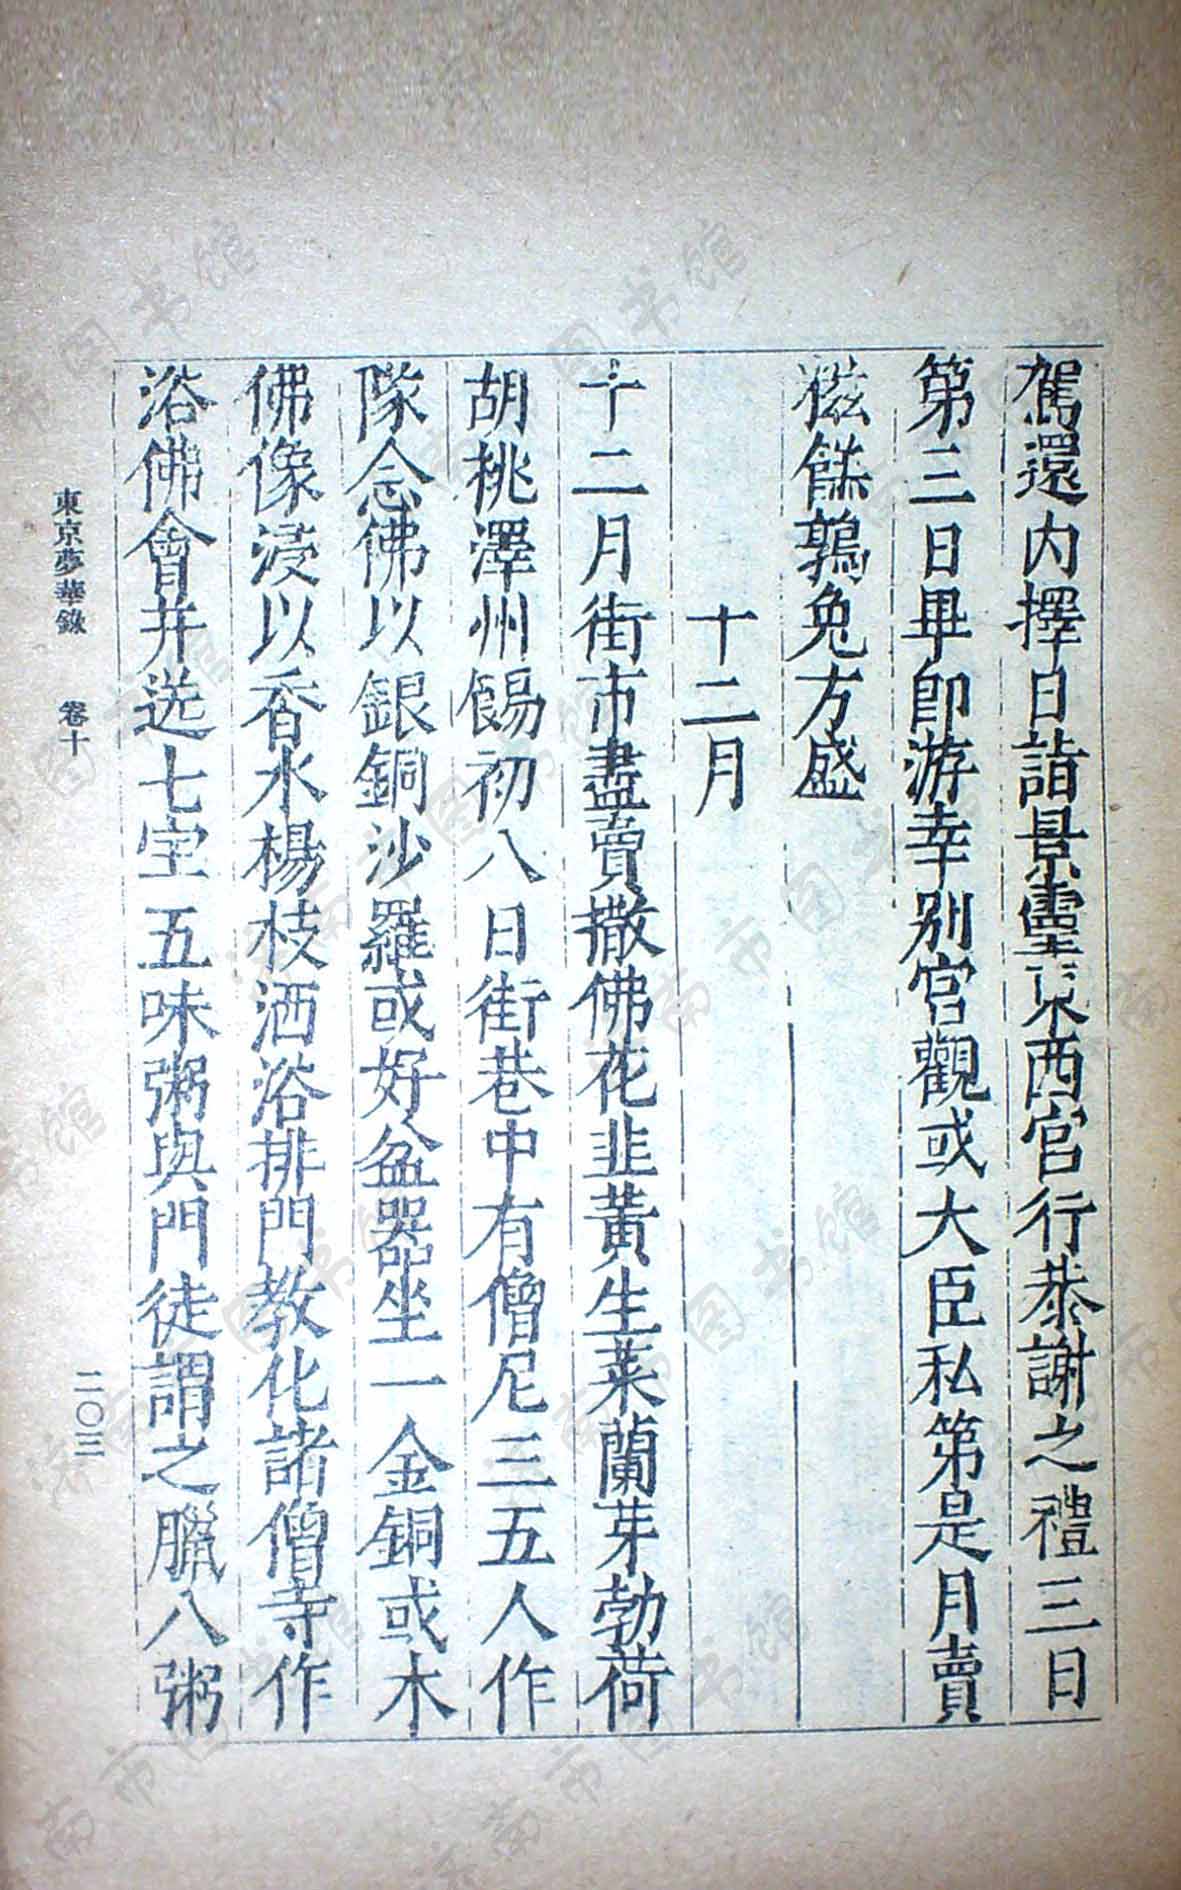 駕還内擇日詣景靈東西宮行恭謝之禮三日
第三日畢即游幸別宮觀或大臣私第是月賣
糍餻鶉兔方盛
十二月
十二月街市盡賣撒佛花韭黃生菜蘭芽勃荷
胡桃澤州餳初八日街巷中有僧尼三五人作
隊念佛以銀銅沙羅或好盆器坐一金銅或木
佛像浸以香水楊枝洒浴排門教化諸僧寺作
浴佛會并送七宝五味粥與門徒謂之臘八粥
東京夢華錄 卷十 二〇三
济南市图书馆